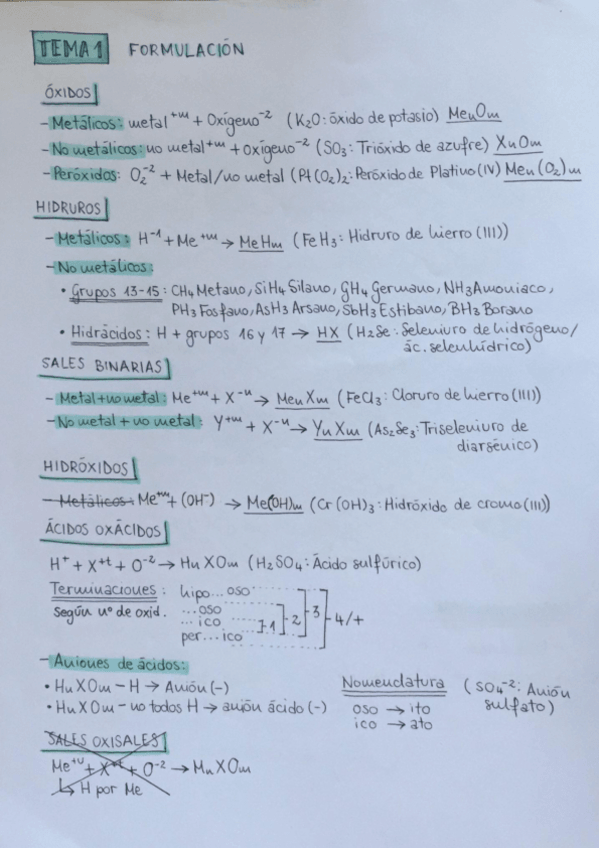 TEMA 1 FORMULACIÓN
ÓXIDOS
- Metálicos: metal⁺ᵐ + Oxígeno⁻² (K₂O: óxido de potasio) MenOm
- No metálicos: no metal⁺ᵐ + oxígeno⁻² (SO₃: Trióxido de azufre) XnOm
- Peróxidos: O₂⁻² + Metal/no metal (Pt(O₂)₂: Peróxido de Platino (IV)) Men(O₂)m
HIDRUROS
- Metálicos: H⁻¹ + Me⁺ᵐ → MeHm (FeH₃: Hidruro de hierro (III))
- No metálicos:
• Grupos 13-15: CH₄ Metano, SiH₄ Silano, GH₄ Germano, NH₃ Amoniaco,
PH₃ Fosfano, AsH₃ Arsano, SbH₃ Estibano, BH₃ Borano
• Hidrácidos: H + grupos 16 y 17 → HX (H₂Se: Seleniuro de hidrógeno/
ác. selenhídrico)
SALES BINARIAS
- Metal + no metal: Me⁺ᵐ + X⁻ⁿ → MenXm (FeCl₃: Cloruro de hierro (III))
- No metal + no metal: Y⁺ᵐ + X⁻ⁿ → YnXm (As₂Se₃: Triseleniuro de
diarsénico)
HIDRÓXIDOS
- Metálicos: Me⁺ᵐ + (OH⁻) → Me(OH)m (Cr(OH)₃: Hidróxido de cromo (III))
ÁCIDOS OXÁCIDOS
H⁺ + X⁺ᵗ + O⁻² → HnXOm (H₂SO₄: Ácido sulfúrico)
Terminaciones: hipo...oso
según nº de oxid. ...oso
...ico 1 2 3 4/+
per...ico
- Aniones de ácidos:
• HnXOm - H → Anión (-)
• HnXOm - no todos H → anión ácido (-)
Nomenclatura (SO₄⁻²: Anión
sulfato)
oso → ito
ico → ato
SALES OXISALES
Me⁺ᵛ + X⁺ᵗ + O⁻² → MnXOm
↳ H por Me